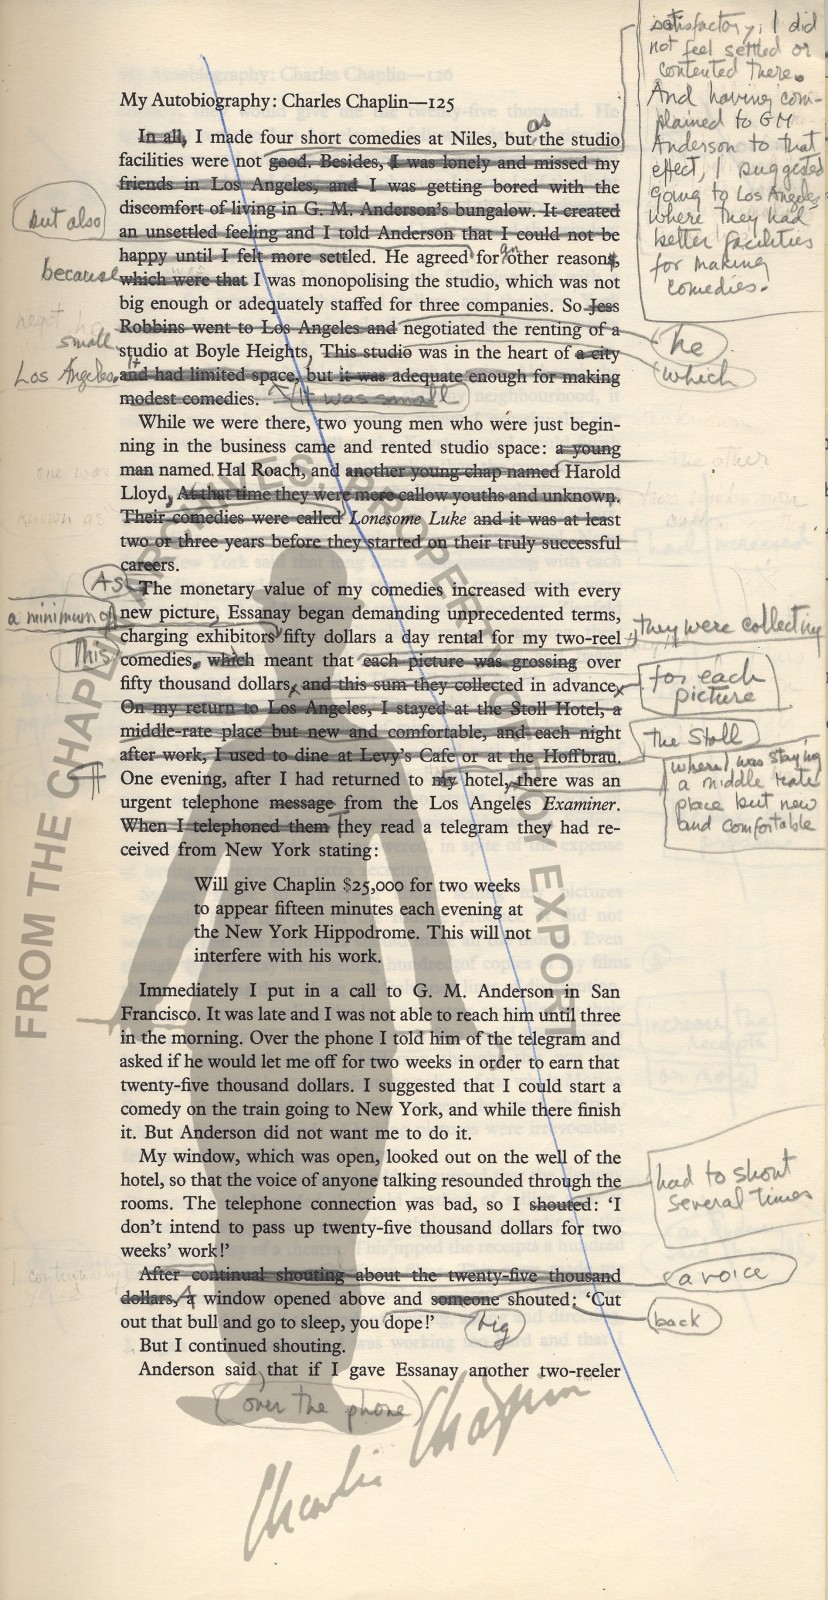 My Autobiography: Charles Chaplin—125
In all, I made four short comedies at Niles, but as the studio
facilities were not good. Besides, I was lonely and missed my
friends in Los Angeles, and I was getting bored with the
discomfort of living in G. M. Anderson's bungalow. It created
an unsettled feeling and I told Anderson that I could not be
happy until I felt more settled. He agreed for an other reasons
which were that I was monopolising the studio, which was not
big enough or adequately staffed for three companies. So Jess
Robbins went to Los Angeles and negotiated the renting of a
studio at Boyle Heights, This studio was in the heart of a city
and had limited space, but it was adequate enough for making
modest comedies. it was small
While we were there, two young men who were just begin-
ning in the business came and rented studio space: a young
man named Hal Roach, and another young chap named Harold
Lloyd, At that time they were mere callow youths and unknown.
Their comedies were called Lonesome Luke and it was at least
two or three years before they started on their truly successful
careers.
As The monetary value of my comedies increased with every
new picture, Essanay began demanding unprecedented terms,
charging exhibitors fifty dollars a day rental for my two-reel
comedies, which meant that each picture was grossing over
fifty thousand dollars, and this sum they collected in advance
On my return to Los Angeles, I stayed at the Stoll Hotel, a
middle-rate place but new and comfortable, and each night
after work, I used to dine at Levy's Cafe or at the Hoffbrau.
One evening, after I had returned to my hotel, there was an
urgent telephone message from the Los Angeles Examiner.
When I telephoned them They read a telegram they had re-
ceived from New York stating:
Will give Chaplin $25,000 for two weeks
to appear fifteen minutes each evening at
the New York Hippodrome. This will not
interfere with his work.
Immediately I put in a call to G. M. Anderson in San
Francisco. It was late and I was not able to reach him until three
in the morning. Over the phone I told him of the telegram and
asked if he would let me off for two weeks in order to earn that
twenty-five thousand dollars. I suggested that I could start a
comedy on the train going to New York, and while there finish
it. But Anderson did not want me to do it.
My window, which was open, looked out on the well of the
hotel, so that the voice of anyone talking resounded through the
rooms. The telephone connection was bad, so I shouted: 'I
don't intend to pass up twenty-five thousand dollars for two
weeks' work!'
After continual shouting about the twenty-five thousand
dollars, A window opened above and someone shouted: 'Cut
out that bull and go to sleep, you dope!' big
But I continued shouting.
Anderson said, that if I gave Essanay another two-reeler
over the phone
satisfactory, I did
not feel settled or
contented there.
And having com-
plained to GM
Anderson to that
effect, I suggested
going to Los Angeles
where they had
better facilities
for making
comedies.
he
which
they were collecting
for each
picture
the Stoll
where I was staying
a middle rate
place but new
and comfortable
had to shout
several times
a voice
back
but also
because
small
Los Angeles. It
a minimum of
This
FROM THE CHAPLIN ARCHIVES. PROPERTY OF ROY EXPORT
Charlie Chaplin